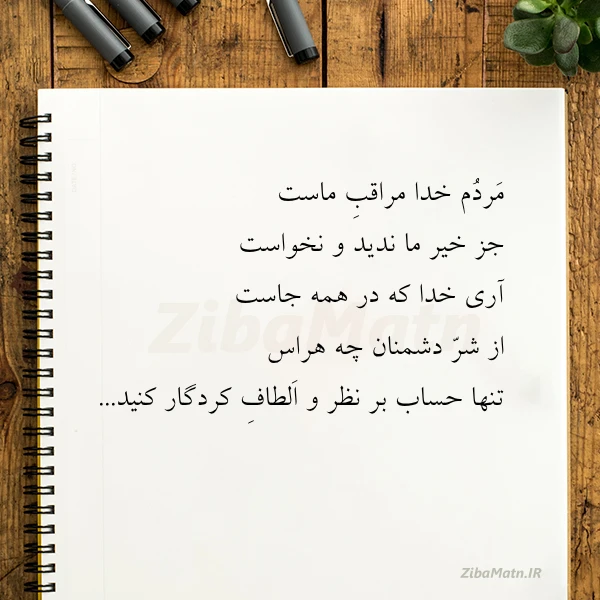 مَردُم خدا مراقبِ ماست
جز خیر ما ندید و نخواست
آری خدا که در همه جاست
از شرّ دشمنان چه هراس
تنها حساب بر نظر و اَلطافِ کردگار کنید...
ZibaMatn
ZibaMatn.IR